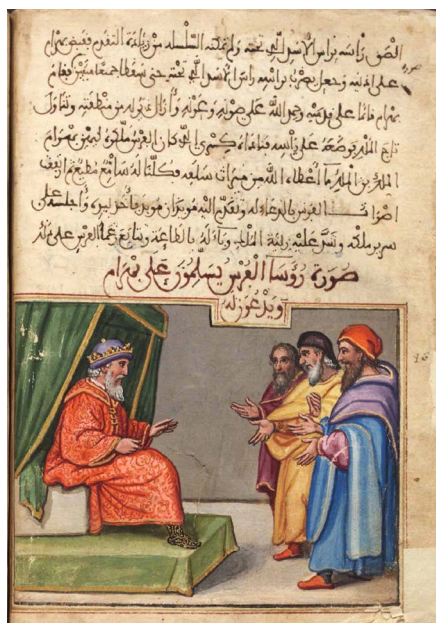 الصق راسه براس الاسد الذي تحته ولم تمكنه السلسله من زيادة التقدم فقبض بهرام
على اذنيه وجعل يضرب براسه راس الاسد الذي تحته حتى سقطا جميعا ميتين فقام
بهرام قائما على قدميه وحمد الله على وعونه وازال من منطقته وتناول
تاج الملك فوضعه على راسه فناداه كسرى الذي كان الفرس ملكوه ليهن بهرام
الملك بن الملك ما اعطاه الله من ميراث سلفه فكلنا له سامع مطيع ثم ارتفعت
اصوات الفرس بالدعاء له وتقدم اليه موبذان موبذ فاخذ بيده واجلسه على
سرير ملكه عليه زينة الملك له بالطاعة وتتابع عظما الفرس على
صورة رؤسا الفرس يسلمون على بهرام
ويدعون له
16